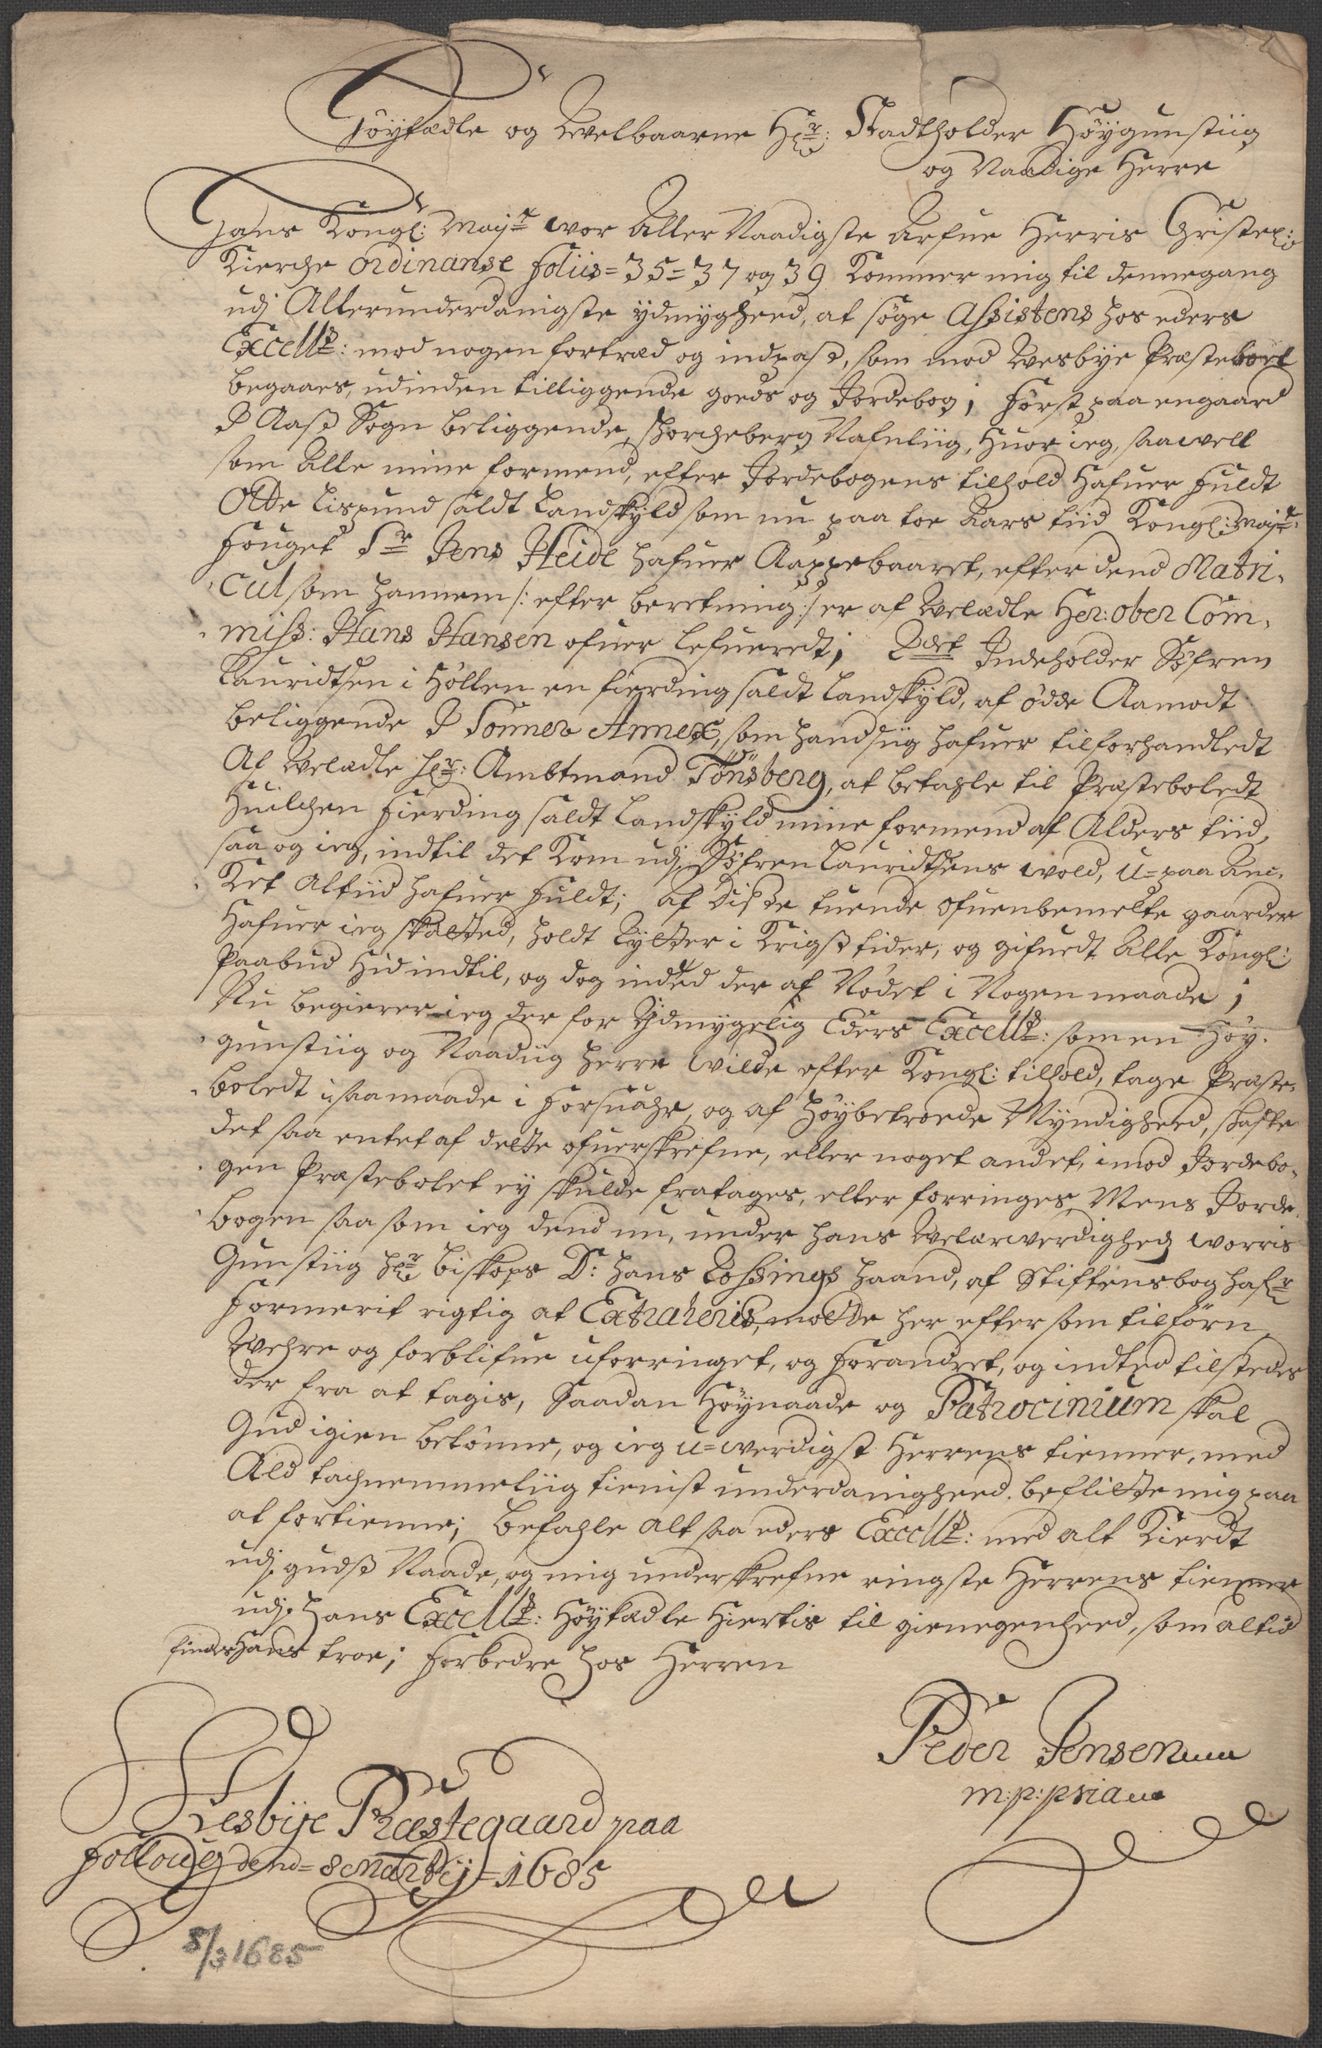 Höyædle og Velbaarne Hr: Stadtholder Höygunstiig
og Naadige Herre
Hans Kongl: Mayt wor Aller Naadigste Arfue Herris Christel:
Kierche Ordinanse foliis = 35 = 37 og 39 Kommer mig til dennegang
udj Allerunderdanigste ydmygheed, at söge Assistens hos eders
Excell: mod nogen fortræd og indpass, som mod Wesbye Præsteboel
begaaes, udinden tilliggende goeds og Jordebog; Först paa en gaard
J Aass Sogn beliggende, Korcheberg Nafnliig, huor ieg, saawell
som Alle mine formend, efter Jordebogens tilhold hafuer fuldt
Otte Lispund saldt Landskyld som nu paa toe Aars tiid Kongl: Mayts
fouget Sr Jens Heide hafuer Aappebaaret, efter dend Matri-
cul som hannem /: efter beretning :/ er af Velædle Her: Ober Com-
miss: Hans Hansen ofuer lefueredt; 2det Indeholder Söfren
Lauridtsen i Höllen en fierding saldt Landskyld, af ödde Aamodt
beliggende J Sonner Annex, som hand sig hafuer tilforhandledt
Af Velædle Hr: Ambtmand Tönsberg, at betahle til Præsteboledt
huilchen fierding saldt Landskyld mine formend af Alders tiid,
saa og ieg, indtil det kom udj Söfren Lauridtsens wold, u=paa Anc-
ket Altiid hafuer fuldt; af disse tuende ofuenbemelte gaarder
hafuer ieg skatted, holdt Rytter i Krigss tider, og gifuedt Alle Kongl:
Paabud hid indtil, og dog inted der af Nödet i Nogen maade;
Nu begierer ieg der for Ydmygelig Eders Excell: som en Höy-
gunstiig og Naadiig herre wilde efter Kongl: tilhold, tage Præste-
boledt i saa maade i forsuahr, og af höybetroede Myndigheed, skaffe
det saa entet af dette ofuerskrefne, eller noget andet, imod Jordebo-
gen Præstebolet ey skulde fratages, eller forringes, Mens Jorde-
bogen saa som ieg dend nu, under hans Velærwerdighed worris
Gunstiig Hr Biskops D: Hans Rossings haand, af Stiftens bog hafr
formerit rigtig at Extraheris, motte her efter som tilförn
Wehre og forblifue uforringet, og forandret, og indted tilstedes
der fra at tagis, Saadan Höynaade og Patrocinium skal
Gud igien belönne, og ieg u=werdigst Herrens tienner, med
Ald tachnemmeliig tienist underdanigheed beflitte mig paa
at fortienne; befahle alt saa eders Excell: med alt Kierdt
udj gudss Naade, og mig underskrefne ringste Herrens tienner
udj hans Excell: höyædle hiertis til gienegenheed, som altid
findes hans troe; forbedre hos Herren
Peder Jensen
m:p:pria
Wesbye Præstegaard paa
follouf dend = 8 Martij = 1685
8/3 1685